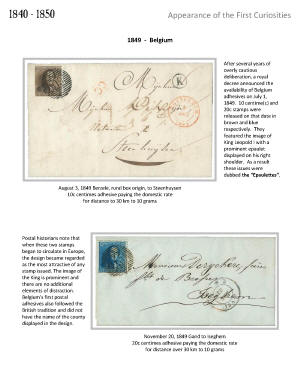 1840 - 1850
Appearance of the First Curiosities
1849 - Belgium
After several years of
overly cautious
deliberation, a royal
decree announced the
availability of Belgium
adhesives on July 1,
1849. 10 centime(c) and
20c stamps were
released on that date in
brown and blue
respectively. They
featured the image of
King Leopold I with a
prominent epaulet
displayed on his right
shoulder. As a result
these issues were
dubbed the "Epaulettes".
K
August 3, 1849 Berzele, rund box origin, to Steenhuysen
10c centimes adhesive paying the domestic rate
for distance to 30 km to 10 grams
Postal historians note that
when these two stamps
began to circulate in Europe,
the design became regarded
as the most attractive of any
stamp issued. The image of
the King is prominent and
there are no additional
elements of distraction.
Belgium's first postal
adhesives also followed the
British tradition and did not
have the name of the county
displayed in the design.
Iseghem
November 20, 1849 Gand to Iseghem
20c centimes adhesive paying the domestic rate
for distance over 30 km to 10 grams